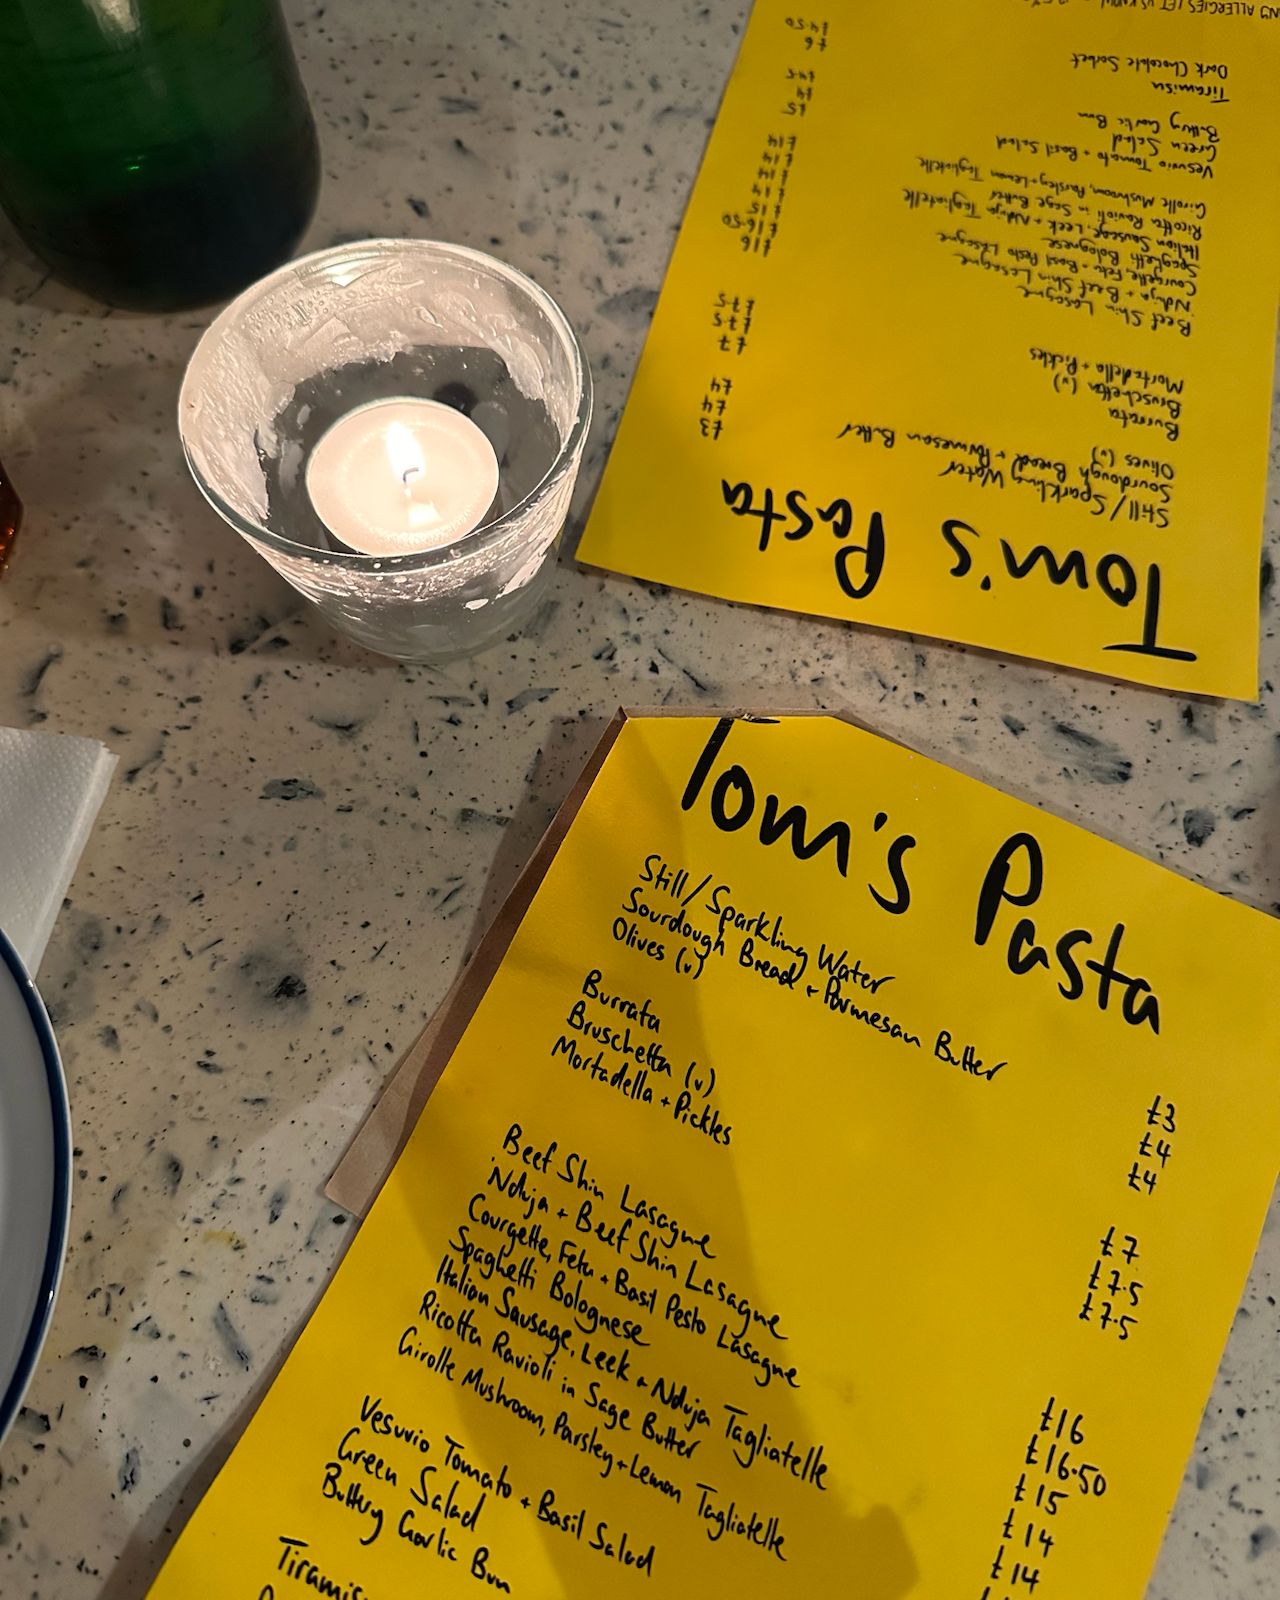 Tom's Pasta
Still/Sparkling Water £3
Sourdough Bread + Parmesan Butter £4
Olives (v) £4
Burrata £7
Bruschetta (v) £7.5
Mortadella + Pickles £7.5
Beef Shin Lasagne £16
'Nduja + Beef Shin Lasagne £16.50
Courgette, Feta + Basil Pesto Lasagne £15
Spaghetti Bolognese £14
Italian Sausage, Leek + Nduja Tagliatelle £14
Ricotta Ravioli in Sage Butter £14
Girolle Mushroom, Parsley + Lemon Tagliatelle £14
Vesuvio Tomato + Basil Salad £5
Green Salad £4
Buttery Garlic Bun £4.5
Tiramisu £6
Dark Chocolate Sorbet £4.50
ALLERGIES LET US KNOW
Tom's Pasta
Still/Sparkling Water £3
Sourdough Bread + Parmesan Butter £4
Olives (v) £4
Burrata £7
Bruschetta (v) £7.5
Mortadella + Pickles £7.5
Beef Shin Lasagne £16
'Nduja + Beef Shin Lasagne £16.50
Courgette, Feta + Basil Pesto Lasagne £15
Spaghetti Bolognese £14
Italian Sausage, Leek + Nduja Tagliatelle £14
Ricotta Ravioli in Sage Butter
Girolle Mushroom, Parsley + Lemon Tagliatelle
Vesuvio Tomato + Basil Salad
Green Salad
Buttery Garlic Bun
Tiramisu